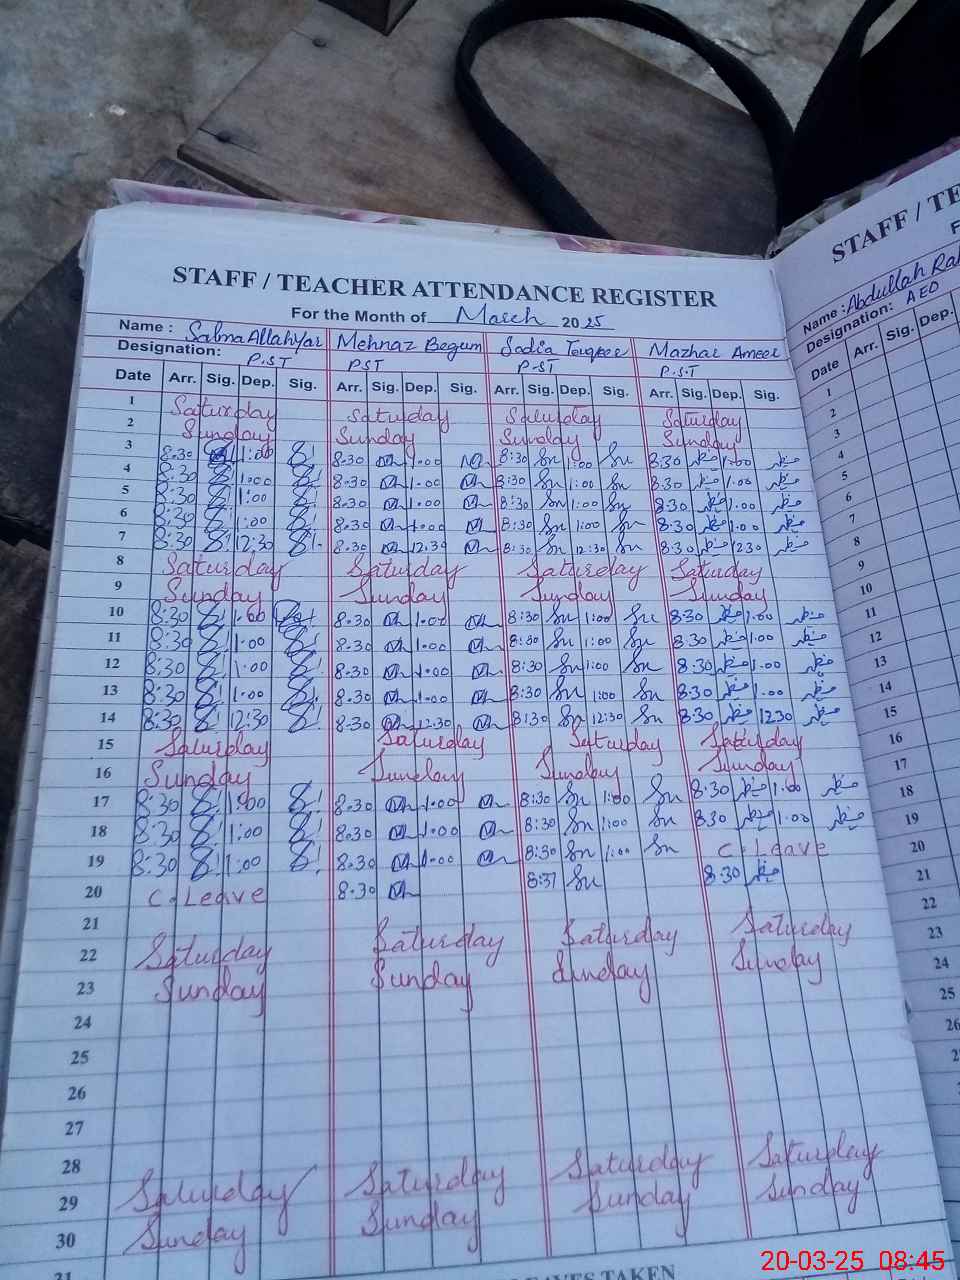 STAFF / TEACHER ATTENDANCE REGISTER
For the Month of March 2025
Name : Salma Allahyar Mehnaz Begum Sadia Mazhar Ameer
Designation: P.S.T PST P.ST P.S.T
Date Arr. Sig. Dep. Sig. Arr. Sig. Dep. Sig. Arr. Sig. Dep. Sig. Arr. Sig. Dep. Sig.
1 Saturday Saturday Saturday Saturday
2 Sunday Sunday Sunday Sunday
3 8.30 1:00 8.30 1.00 8:30 Sn 1:00 Sn 8:30 1.00
4 8:30 1:00 8.30 1.00 8:30 Sn 1:00 Sn 8.30 1.00
5 8:30 1:00 8.30 1.00 8:30 Sn 1:00 Sn 8.30 1.00
6 8:30 1:00 8.30 1.00 8:30 Sn 1:00 Sn 8.30 1.00
7 8:30 12:30 8.30 12.30 8:30 Sn 12:30 Sn 8:30 1230
8 Saturday Saturday Saturday Saturday
9 Sunday Sunday Sunday Sunday
10 8:30 1.00 8.30 1.00 8:30 Sn 1:00 Sn 8:30 1.00
11 8:30 1.00 8.30 1.00 8:30 Sn 1:00 Sn 8.30 1.00
12 8:30 1:00 8.30 1.00 8:30 Sn 1:00 Sn 8.30 1.00
13 8:30 1.00 8.30 1.00 8:30 Sn 1:00 Sn 8:30 1.00
14 8:30 12:30 8.30 12.30 8:30 Sn 12:30 Sn 8:30 1230
15 Saturday Saturday Saturday Saturday
16 Sunday Sunday Sunday Sunday
17 8:30 1:00 8.30 1.00 8:30 Sn 1:00 Sn 8:30 1.00
18 8:30 1:00 8.30 1:00 8:30 Sn 1:00 Sn 8.30 1.00
19 8:30 1:00 8.30 1.00 8:30 Sn 1:00 Sn C.Leave
20 C.Leave 8.30 8:37 Sn 8:30
21
22 Saturday Saturday Saturday Saturday
23 Sunday Sunday Sunday Sunday
24
25
26
27
28
29 Saturday Saturday Saturday Saturday
30 Sunday Sunday Sunday Sunday
31
TAKEN
STAFF /
Name : Abdullah
Designation: AEO
Date Arr. Sig. Dep.
1
2
3
4
5
6
7
8
9
10
11
12
13
14
15
16
17
18
19
20
21
22
23
24
25
26
20-03-25 08:45